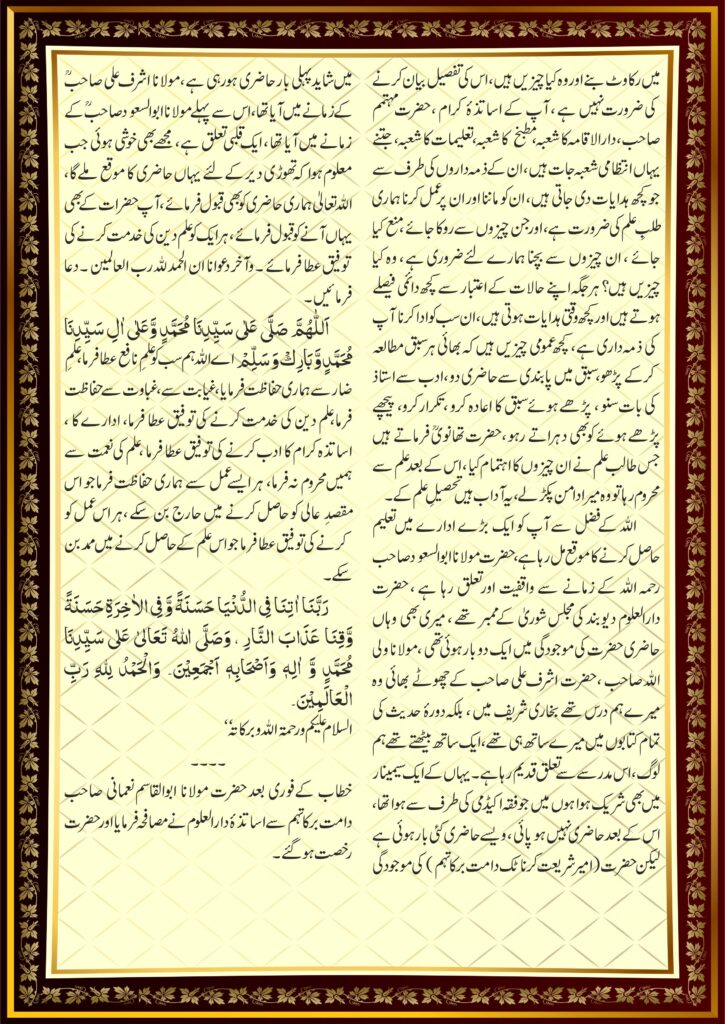 میں رکاوٹ بنے اور وہ کیا چیزیں ہیں، اس کی تفصیل بیان کرنے
کی ضرورت نہیں ہے، آپ کے اساتذۂ کرام، حضرت مہتمم
صاحب، دارالاقامہ کا شعبہ، مطبخ کا شعبہ، تعلیمات کا شعبہ، جتنے
یہاں انتظامی شعبہ جات ہیں، ان کے ذمہ داروں کی طرف سے
جو کچھ ہدایات دی جاتی ہیں، ان کو ماننا اور ان پر عمل کرنا ہماری
طلبِ علم کی ضرورت ہے، اور جن چیزوں سے روکا جائے، منع کیا
جائے، ان چیزوں سے بچنا ہمارے لئے ضروری ہے، وہ کیا
چیزیں ہیں؟ ہر جگہ اپنے حالات کے اعتبار سے کچھ دائمی فیصلے
ہوتے ہیں اور کچھ وقتی ہدایات ہوتی ہیں، ان سب کو ادا کرنا آپ
کی ذمہ داری ہے، کچھ عمومی چیزیں ہیں کہ بھائی ہر سبق مطالعہ
کر کے پڑھو، سبق میں پابندی سے حاضری دو، ادب سے استاذ
کی بات سنو، پڑھے ہوئے سبق کا اعادہ کرو، تکرار کرو، پیچھے
پڑھے ہوئے کو بھی دہراتے رہو، حضرت تھانویؒ فرماتے ہیں
جس طالب علم نے ان چیزوں کا اہتمام کیا، اس کے بعد علم سے
محروم رہا تو وہ میرا دامن پکڑ لے، یہ آداب ہیں تحصیلِ علم کے۔
اللہ کے فضل سے آپ کو ایک بڑے ادارے میں تعلیم
حاصل کرنے کا موقع مل رہا ہے، حضرت مولانا ابوالسعود صاحب
رحمہ اللہ کے زمانے سے واقفیت اور تعلق رہا ہے، حضرت
دارالعلوم دیوبند کی مجلس شوریٰ کے ممبر تھے، میری بھی وہاں
حاضری حضرت کی موجودگی میں ایک دو بار ہوئی تھی، مولانا ولی
اللہ صاحب، حضرت اشرف علی صاحب کے چھوٹے بھائی وہ
میرے ہم درس تھے بخاری شریف میں، بلکہ دورۂ حدیث کی
تمام کتابوں میں میرے ساتھ ہی تھے، ایک ساتھ بیٹھتے تھے ہم
لوگ، اس مدرسے سے تعلق قدیم رہا ہے۔ یہاں کے ایک سیمینار
میں بھی شریک ہوا ہوں میں جو فقہ اکیڈمی کی طرف سے ہوا تھا،
اس کے بعد حاضری نہیں ہو پائی، ویسے حاضری کئی بار ہوئی ہے
لیکن حضرت (امیر شریعت کرناٹک دامت برکاتہم) کی موجودگی
میں شاید پہلی بار حاضری ہو رہی ہے، مولانا اشرف علی صاحبؒ
کے زمانے میں آیا تھا، اس سے پہلے مولانا ابوالسعود صاحبؒ کے
زمانے میں آیا تھا، ایک قلبی تعلق ہے، مجھے بھی خوشی ہوئی جب
معلوم ہوا کہ تھوڑی دیر کے لئے یہاں حاضری کا موقع ملے گا،
اللہ تعالیٰ ہماری حاضری کو بھی قبول فرمائے، آپ حضرات کے بھی
یہاں آنے کو قبول فرمائے، ہر ایک کو علم دین کی خدمت کرنے کی
توفیق عطا فرمائے۔ وآخر دعوانا ان الحمد للہ رب العالمین۔ دعا
فرمائیں۔
اَللّٰهُمَّ صَلِّی عَلٰی سَیِّدِنَا مُحَمَّدٍ وَّعَلٰی اٰلِ سَیِّدِنَا
مُحَمَّدٍ وَّبَارِكْ وَسَلِّمْ اے اللہ ہم سب کو علم نافع عطا فرما، علمِ
ضار سے ہماری حفاظت فرما یا، غیابت سے، غباوت سے حفاظت
فرما، علم دین کی خدمت کرنے کی توفیق عطا فرما، ادارے کا،
اساتذہ کرام کا ادب کرنے کی توفیق عطا فرما، علم کی نعمت سے
ہمیں محروم نہ فرما، ہر ایسے عمل سے ہماری حفاظت فرما جو اس
مقصدِ عالی کو حاصل کرنے میں حارج بن سکے، ہر اس عمل کو
کرنے کی توفیق عطا فرما جو اس علم کے حاصل کرنے میں ممد بن
سکے۔
رَبَّنَا اٰتِنَا فِی الدُّنْیَا حَسَنَةً وَّفِی الْاٰخِرَةِ حَسَنَةً
وَّقِنَا عَذَابَ النَّارِ ۔ وَصَلَّی اللّٰهُ تَعَالٰی عَلٰی سَیِّدِنَا
مُحَمَّدٍ وَّ اٰلِهٖ وَاَصْحَابِهٖ اَجْمَعِیْنَ۔ وَالْحَمْدُ لِلّٰهِ رَبِّ
الْعَالَمِیْنَ۔
السلام علیکم ورحمۃ اللہ وبرکاتہ‘‘
----
خطاب کے فوری بعد حضرت مولانا ابوالقاسم نعمانی صاحب
دامت برکاتہم سے اساتذۂ دارالعلوم نے مصافحہ فرمایا اور حضرت
رخصت ہو گئے۔